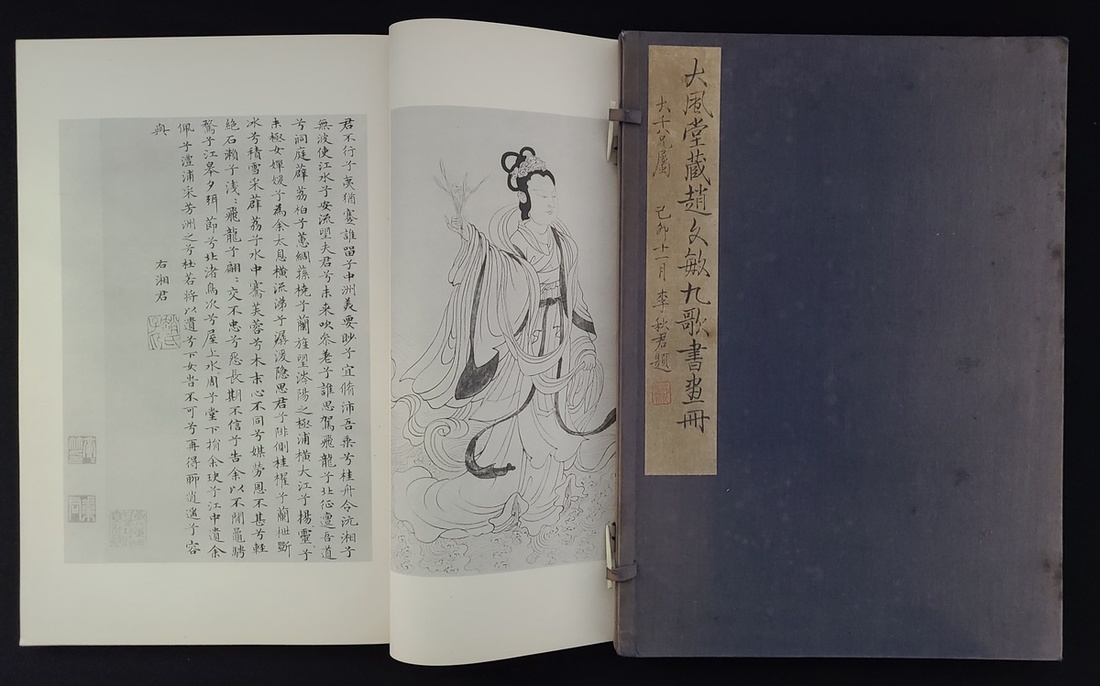 大風堂藏趙文敏九歌書畫冊
大千八兄屬 己卯十一月 李秋君題
君不行兮夷猶蹇誰留兮中洲美要眇兮宜脩沛吾乘兮桂舟令沅湘兮
無波使江水兮安流望夫君兮未來吹參差兮誰思駕飛龍兮北征邅吾道
兮洞庭薜荔柏兮蕙綢蓀橈兮蘭旌望涔陽之極浦橫大江兮揚靈兮
未極女嬋媛兮為余太息橫流涕兮潺湲隱思君兮陫側桂櫂兮蘭枻斲
冰兮積雪采薜荔兮水中搴芙蓉兮木末心不同兮媒勞恩不甚兮輕
絕石瀨兮淺〻飛龍兮翩〻交不忠兮怨長期不信兮告余以不閒鼂騁
騖兮江皋夕弭節兮北渚鳥次兮屋上水周兮堂下捐余玦兮江中遺余
佩兮澧浦采芳洲之兮杜若將以遺兮下女旹不可兮再得聊逍遙兮容
與
右湘君
趙氏子昂